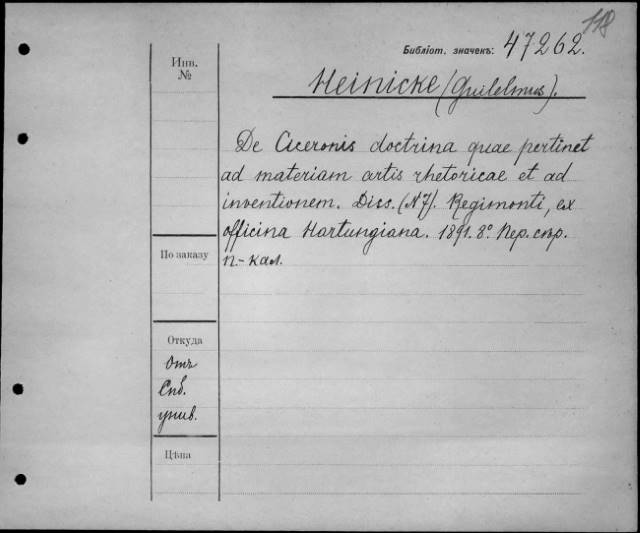 118
Библіот. значекъ: 47262.
Инв. №
Heinicke (Guilelmus).
De Ciceronis doctrina quae pertinet
ad materiam artis rhetoricae et ad
inventionem. Diss. (N7). Regimonti, ex
officina Hartungiana. 1891. 8º. Пер. сѣр.
п.-кал.
По заказу
Откуда
Отъ
Спб.
унив.
Цѣна